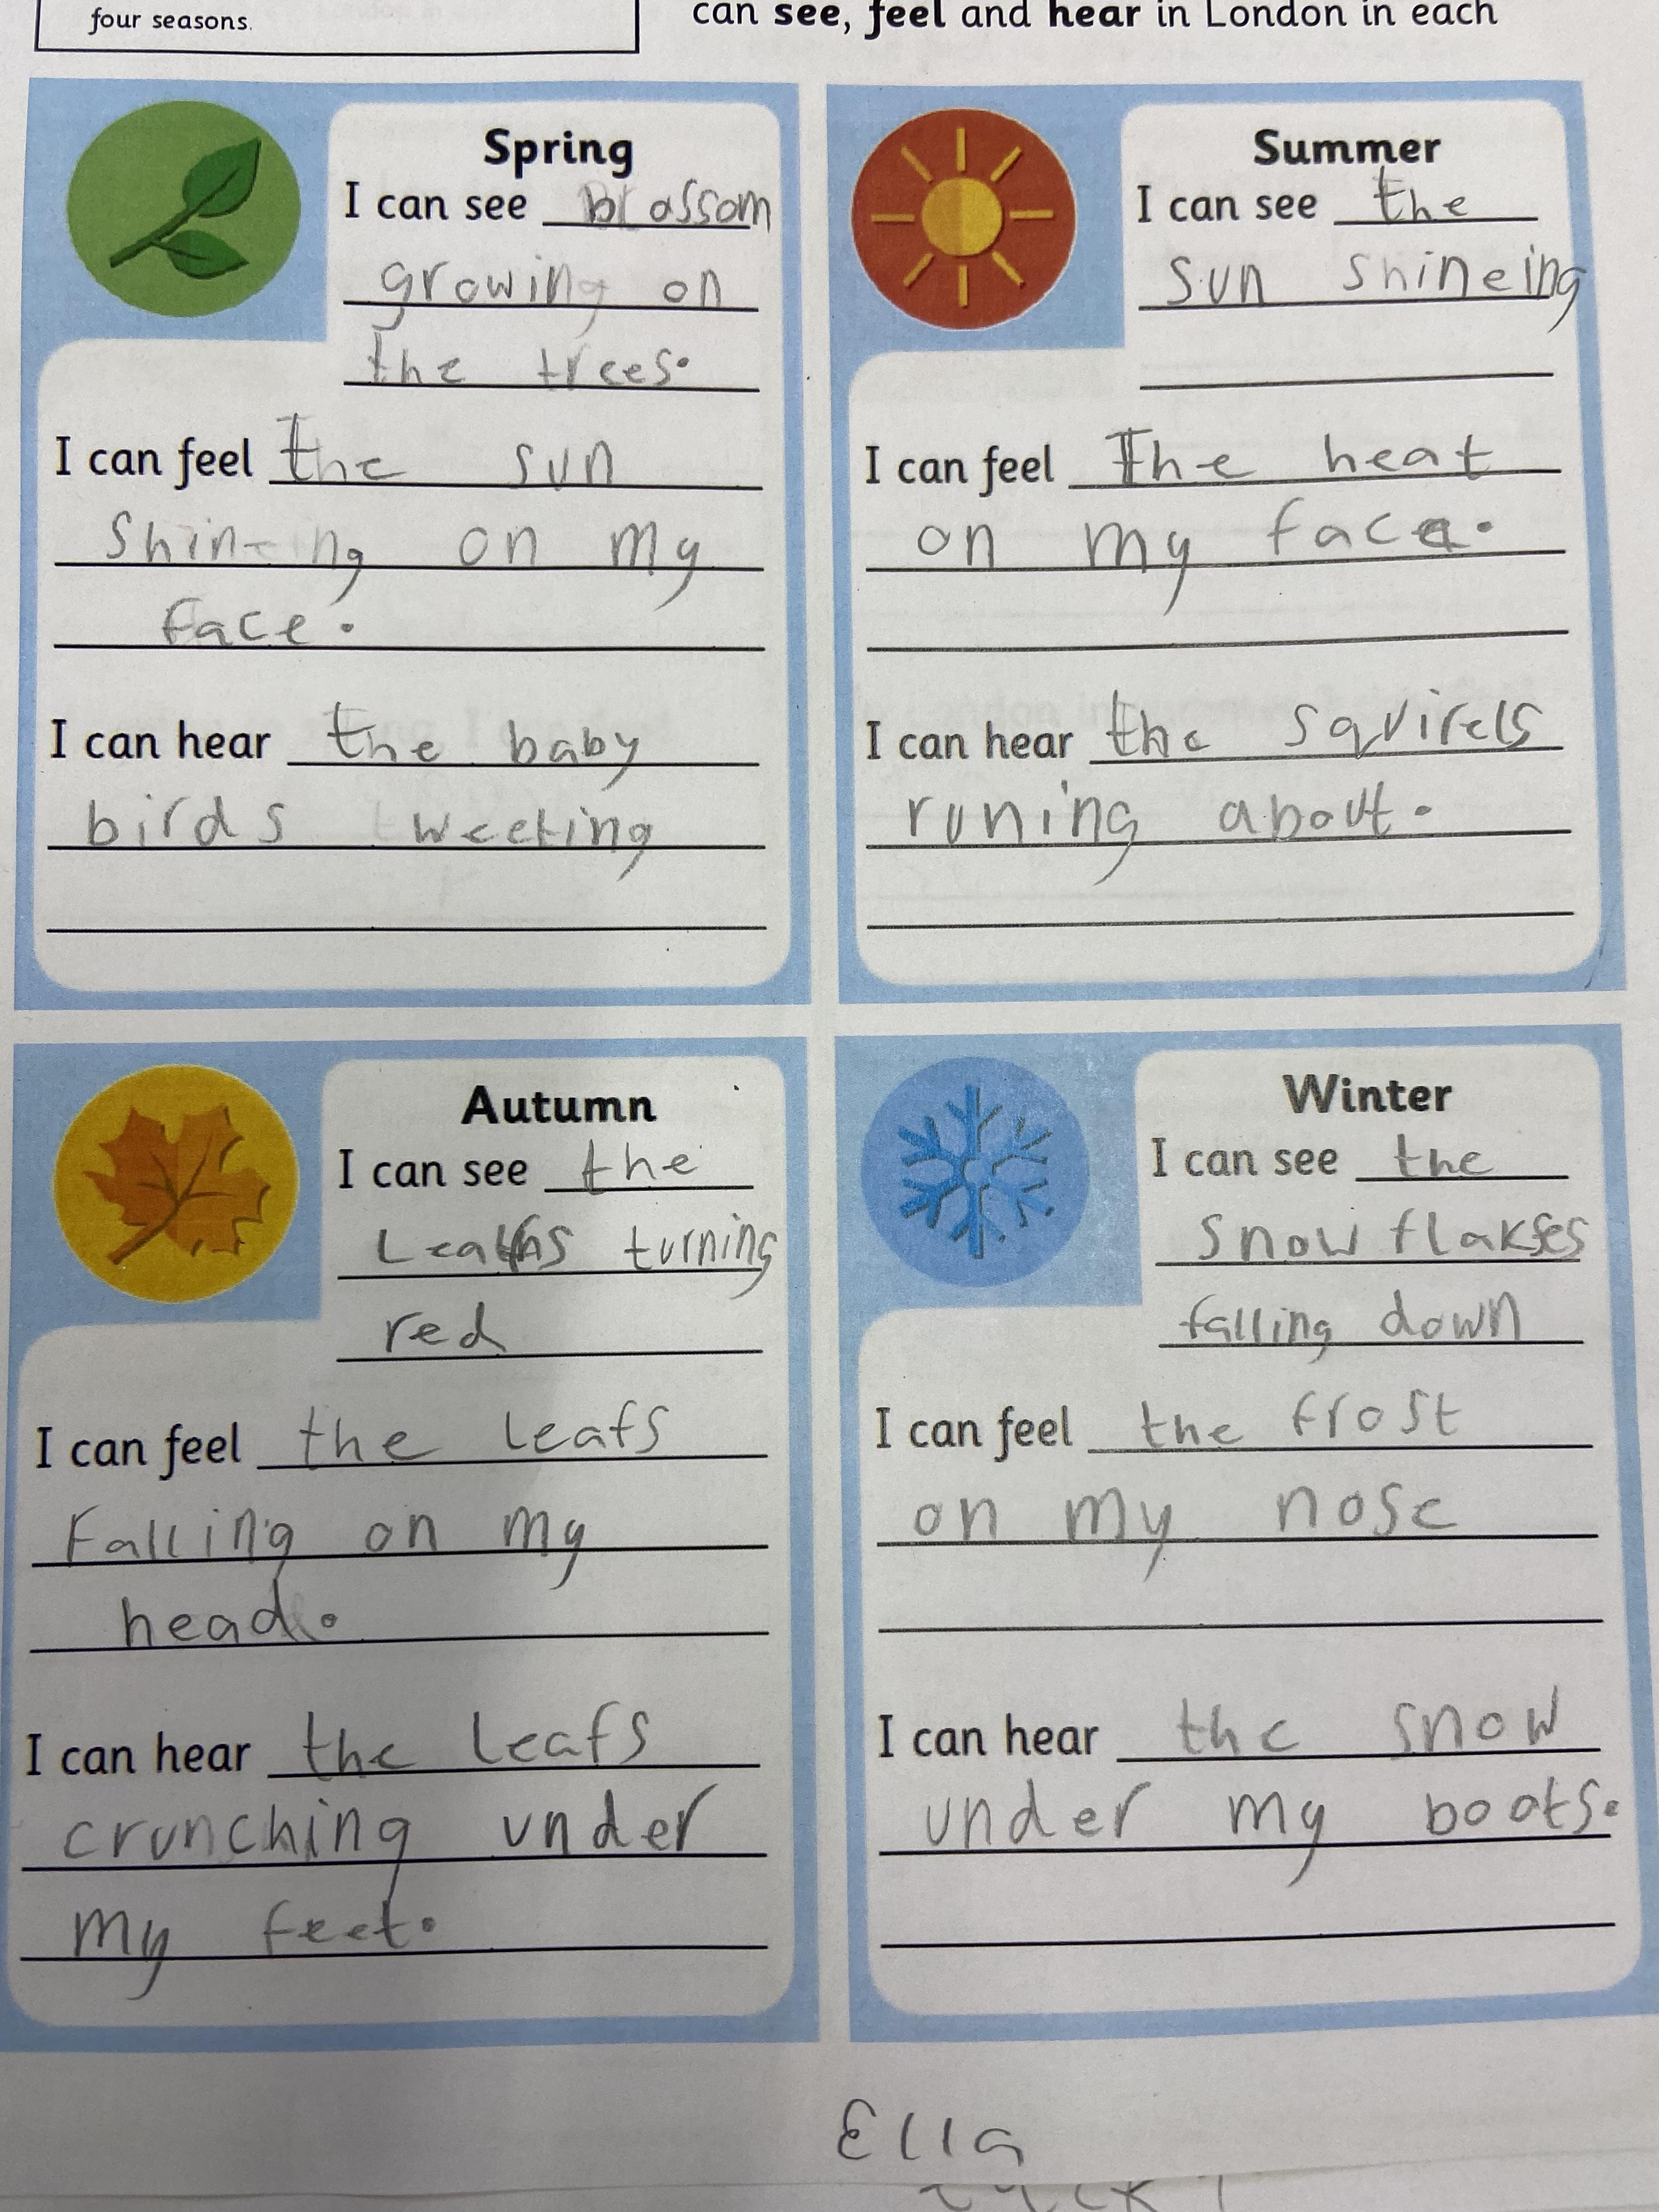 four seasons.
can see, feel and hear in London in each
Spring
I can see blossom
growing on
the trees.
I can feel the sun
shining on my
face.
I can hear the baby
birds tweeting
Summer
I can see the
sun shineing
I can feel The heat
on my face.
I can hear the squirels
runing about.
Autumn
I can see the
Leafs turning
red
I can feel the leafs
Falling on my
head.
I can hear the leafs
crunching under
my feet.
Winter
I can see the
snow flakes
falling down
I can feel the frost
on my nose
I can hear the snow
under my boots.
Ella